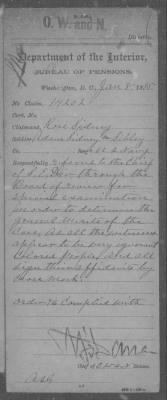 O. W. and N.
Division
Department of the Interior,
BUREAU OF PENSIONS,
Washington, D. C., Jan 8, 1885
No. Claim, 19202
Cert. No.
Claimant, Rose Sidney
Soldier, Adam Sidney
Respectfully refers to the Chief
of S. E. Div. through the
Board of review for
special examination
in order to determine the
general merits of the
Case, as all the witnesses
appear to be very ignorant
Colored People and all
sign their affidavits by
Cross mark.
Order 76 complied with
Chief of Division